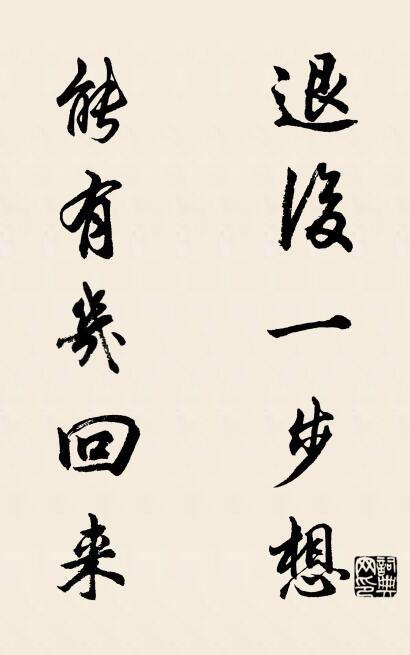 退後一步想
能有幾回来
詞典网印